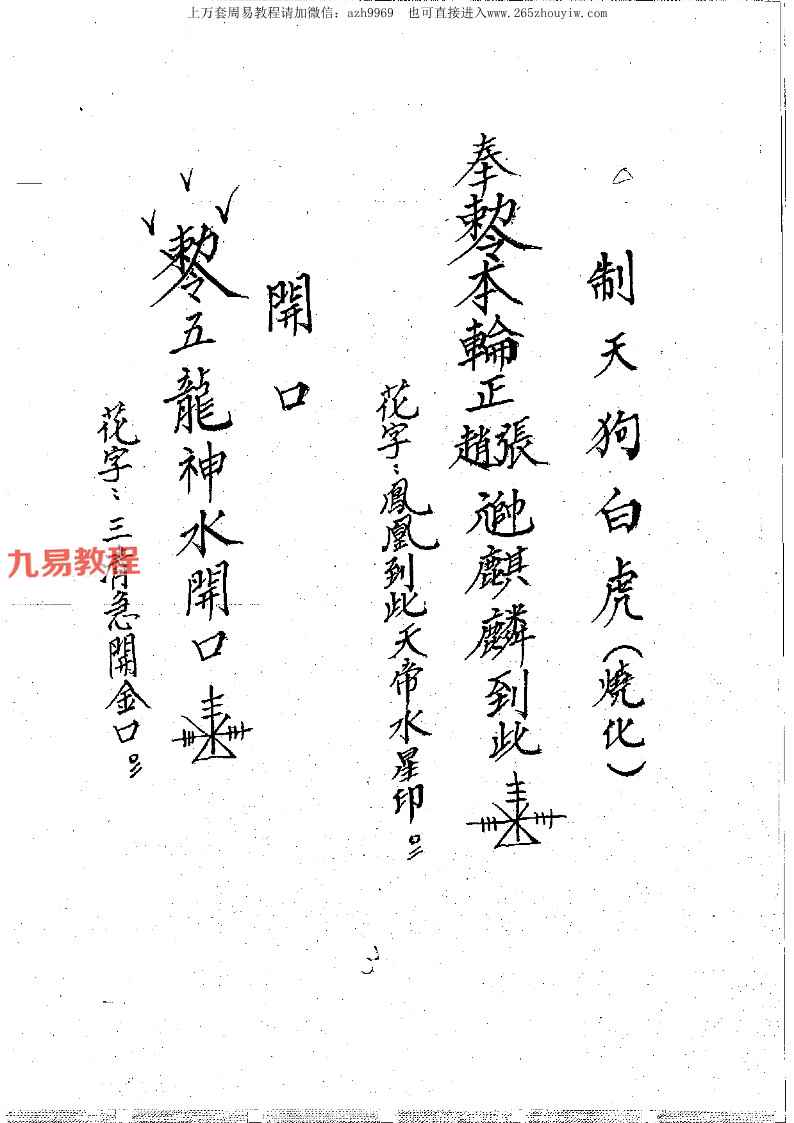 上万套周易教程请加微信：azh9969 也可直接进入www.265zhouyiw.com
制天狗白虎（燒化）
奉敕令本輪正趙張 麒麟到此
花字：鳳凰到此天帝水星印
開口
敕令五龍神水開口
花字：三清急開金口
九易教程